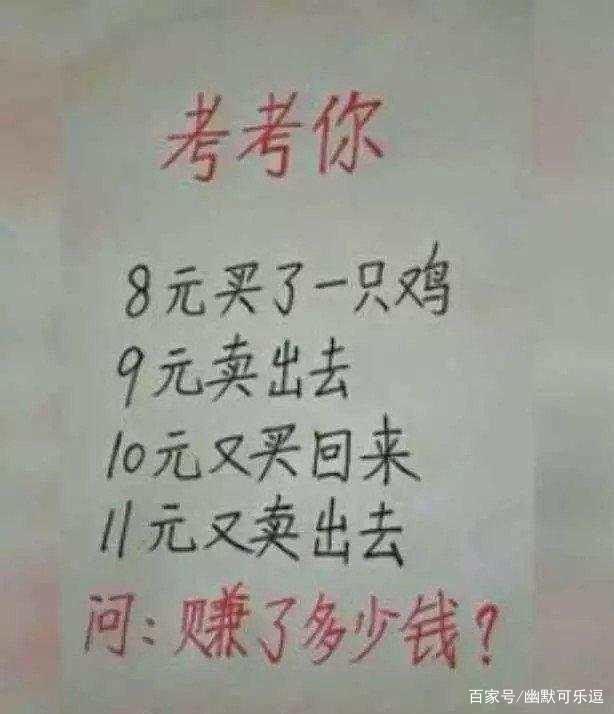 考考你
8元买了一只鸡
9元卖出去
10元又买回来
11元又卖出去
问:赚了多少钱?
百家号/幽默可乐逗